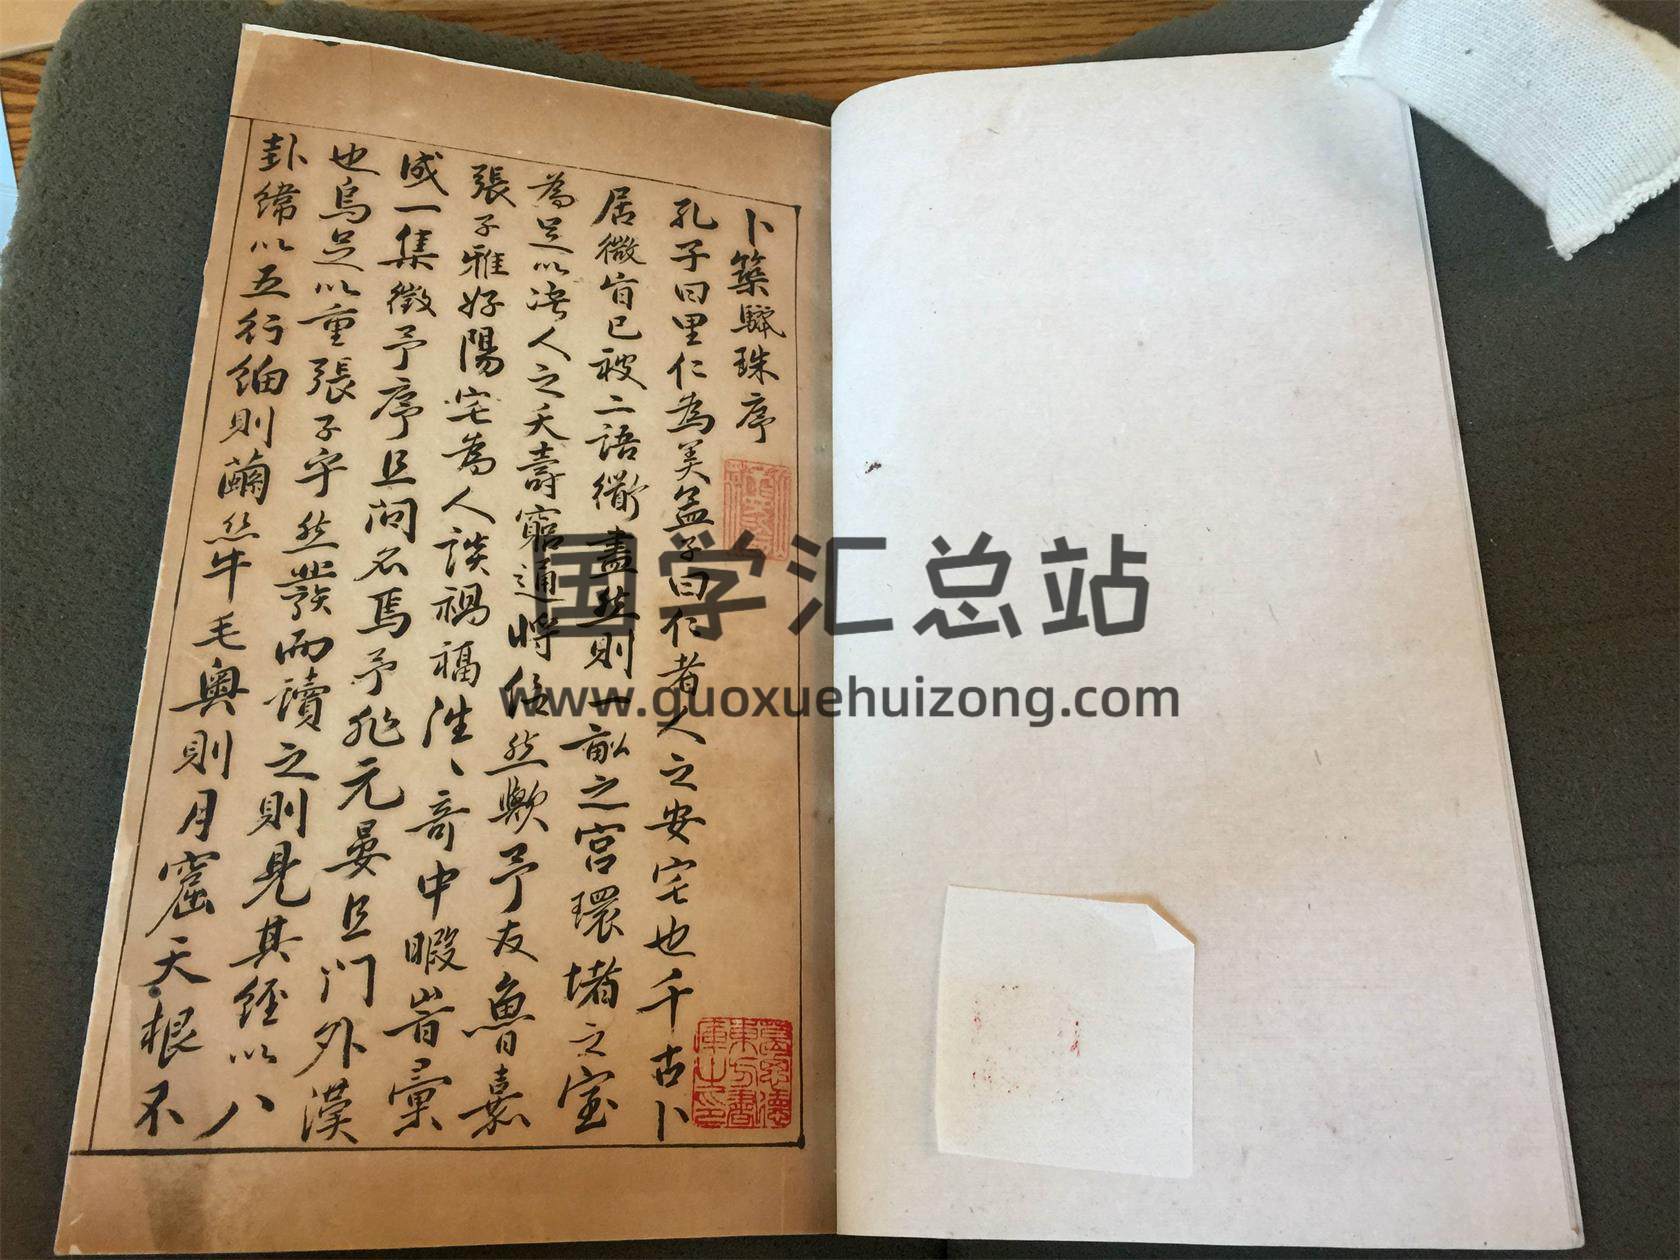 卜築驪珠序
孔子曰里仁為美孟子曰仁者人之安宅也千古卜
居微旨已被二語衢盡然則一畝之宮環堵之室
為足以決人之夭壽窮通將信然歟予友魯嘉
張子雅好陽宅為人談禍福徃〻奇中暇嘗彙
成一集徵予序且問名焉予非元晏且門外漢
也烏足以重張子乎然發而讀之則見其經以八
卦緯以五行細則繭絲牛毛奧則月窟天根不
葛思德
東方書
庫之印
国学汇总站
www.guoxuehuizong.com